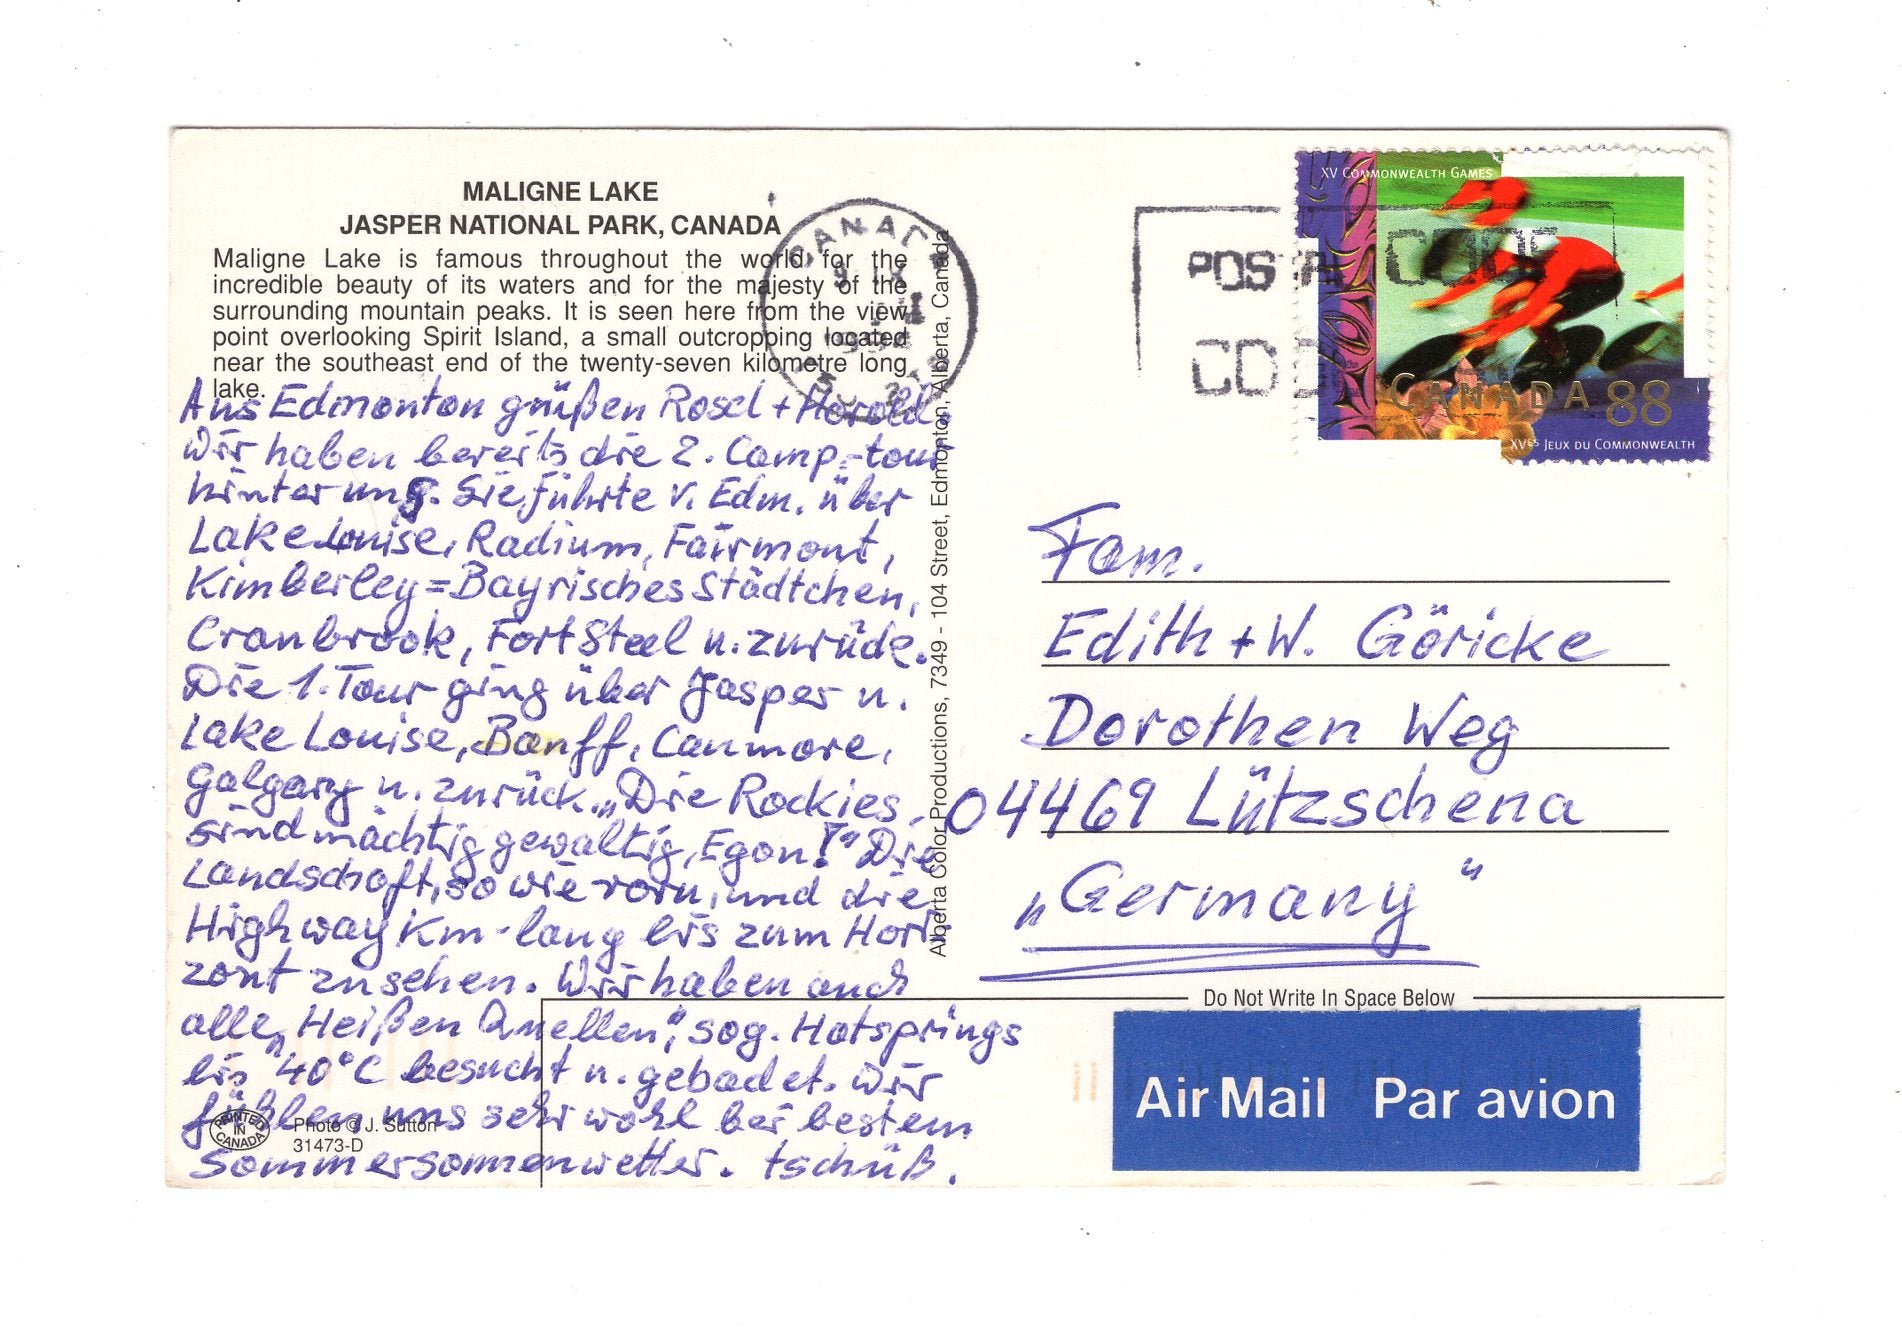 MALIGNE LAKE
JASPER NATIONAL PARK, CANADA
Maligne Lake is famous throughout the world for the
incredible beauty of its waters and for the majesty of the
surrounding mountain peaks. It is seen here from the view
point overlooking Spirit Island, a small outcropping located
near the southeast end of the twenty-seven kilometre long
lake.
Aus Edmonton grüßen Rosel + Herold
Wir haben bereits die 2. Camp.-tour
hinter uns. Sie führte v. Edm. über
Lake Louise, Radium, Fairmont,
Kimberley = Bayrisches Städtchen,
Cranbrook, Fort Steel u. zurück.
Die 1. Tour ging über Jasper u.
Lake Louise, Banff, Canmore,
Galgary u. zurück. „Die Rockies
sind mächtig gewaltig, Egon!" Die
Landschaft, so wie vorn, und die
Highway Km-lang bis zum Hori-
zont zu sehen. Wir haben auch
alle „Heißen Quellen", sog. Hotsprings
bis 40°C besucht u. gebadet. Wir
fühlen uns sehr wohl bei bestem
Sommersonnenwetter. tschüß.
PRINTED IN CANADA
Photo © J. Sutton
31473-D
Alberta Color Productions, 7349 - 104 Street, Edmonton, Alberta, Canada
CANADA
POSTAL CODE
CODE
XV COMMONWEALTH GAMES
CANADA 88
XVES JEUX DU COMMONWEALTH
Fam.
Edith + W. Göricke
Dorothen Weg
04469 Lützschena
„Germany"
Do Not Write In Space Below
Air Mail Par avion